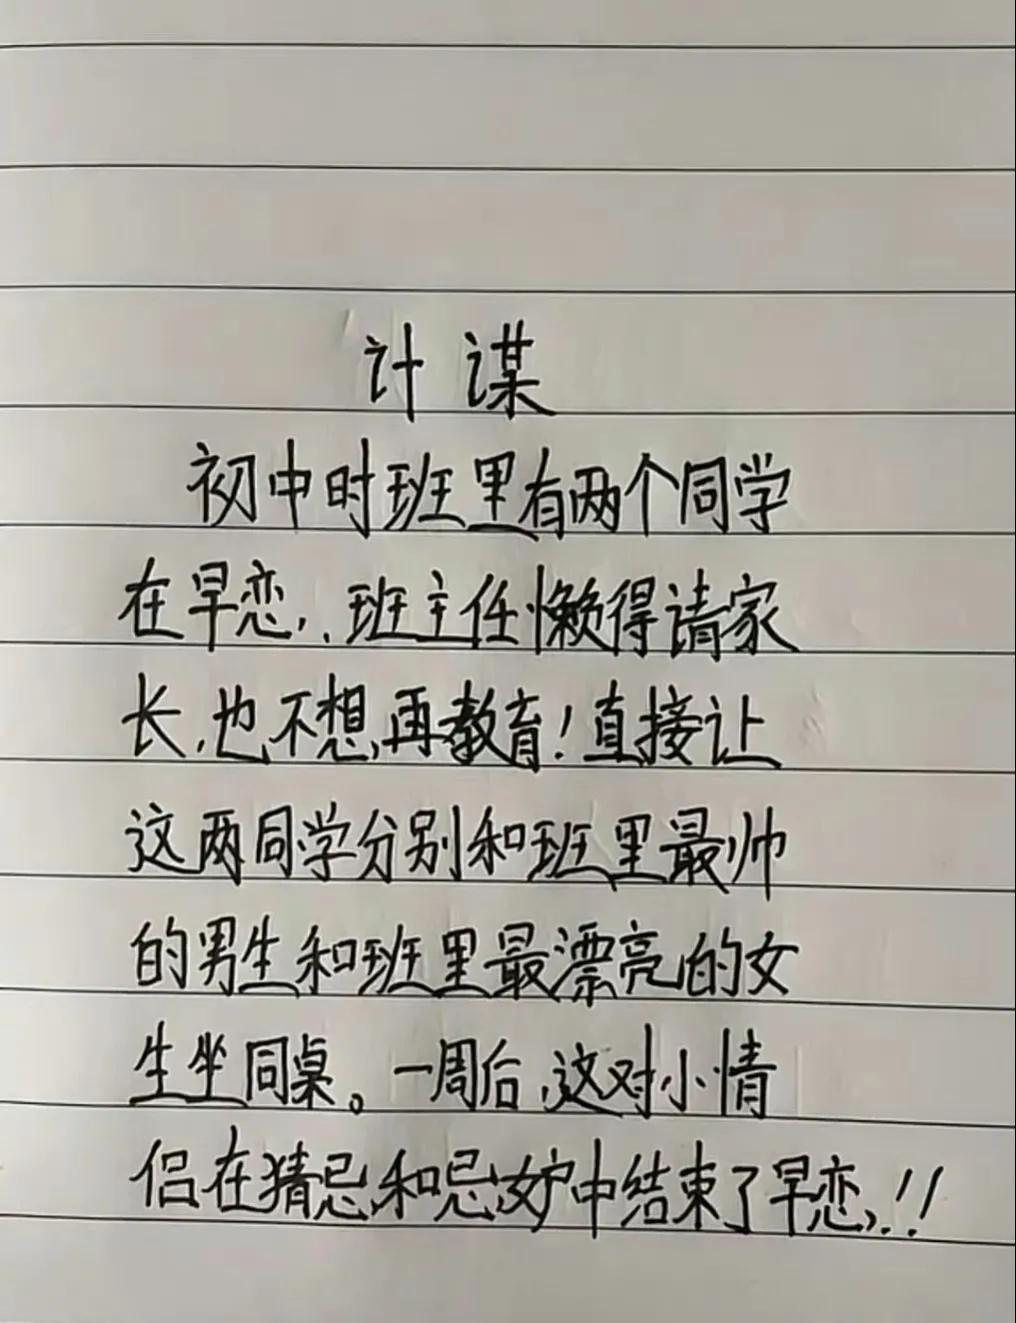 计谋
初中时班里有两个同学
在早恋,班主任懒得请家
长,也不想再教育!直接让
这两同学分别和班里最帅
的男生和班里最漂亮的女
生坐同桌。一周后,这对小情
侣在猜忌和忌妒中结束了早恋!!